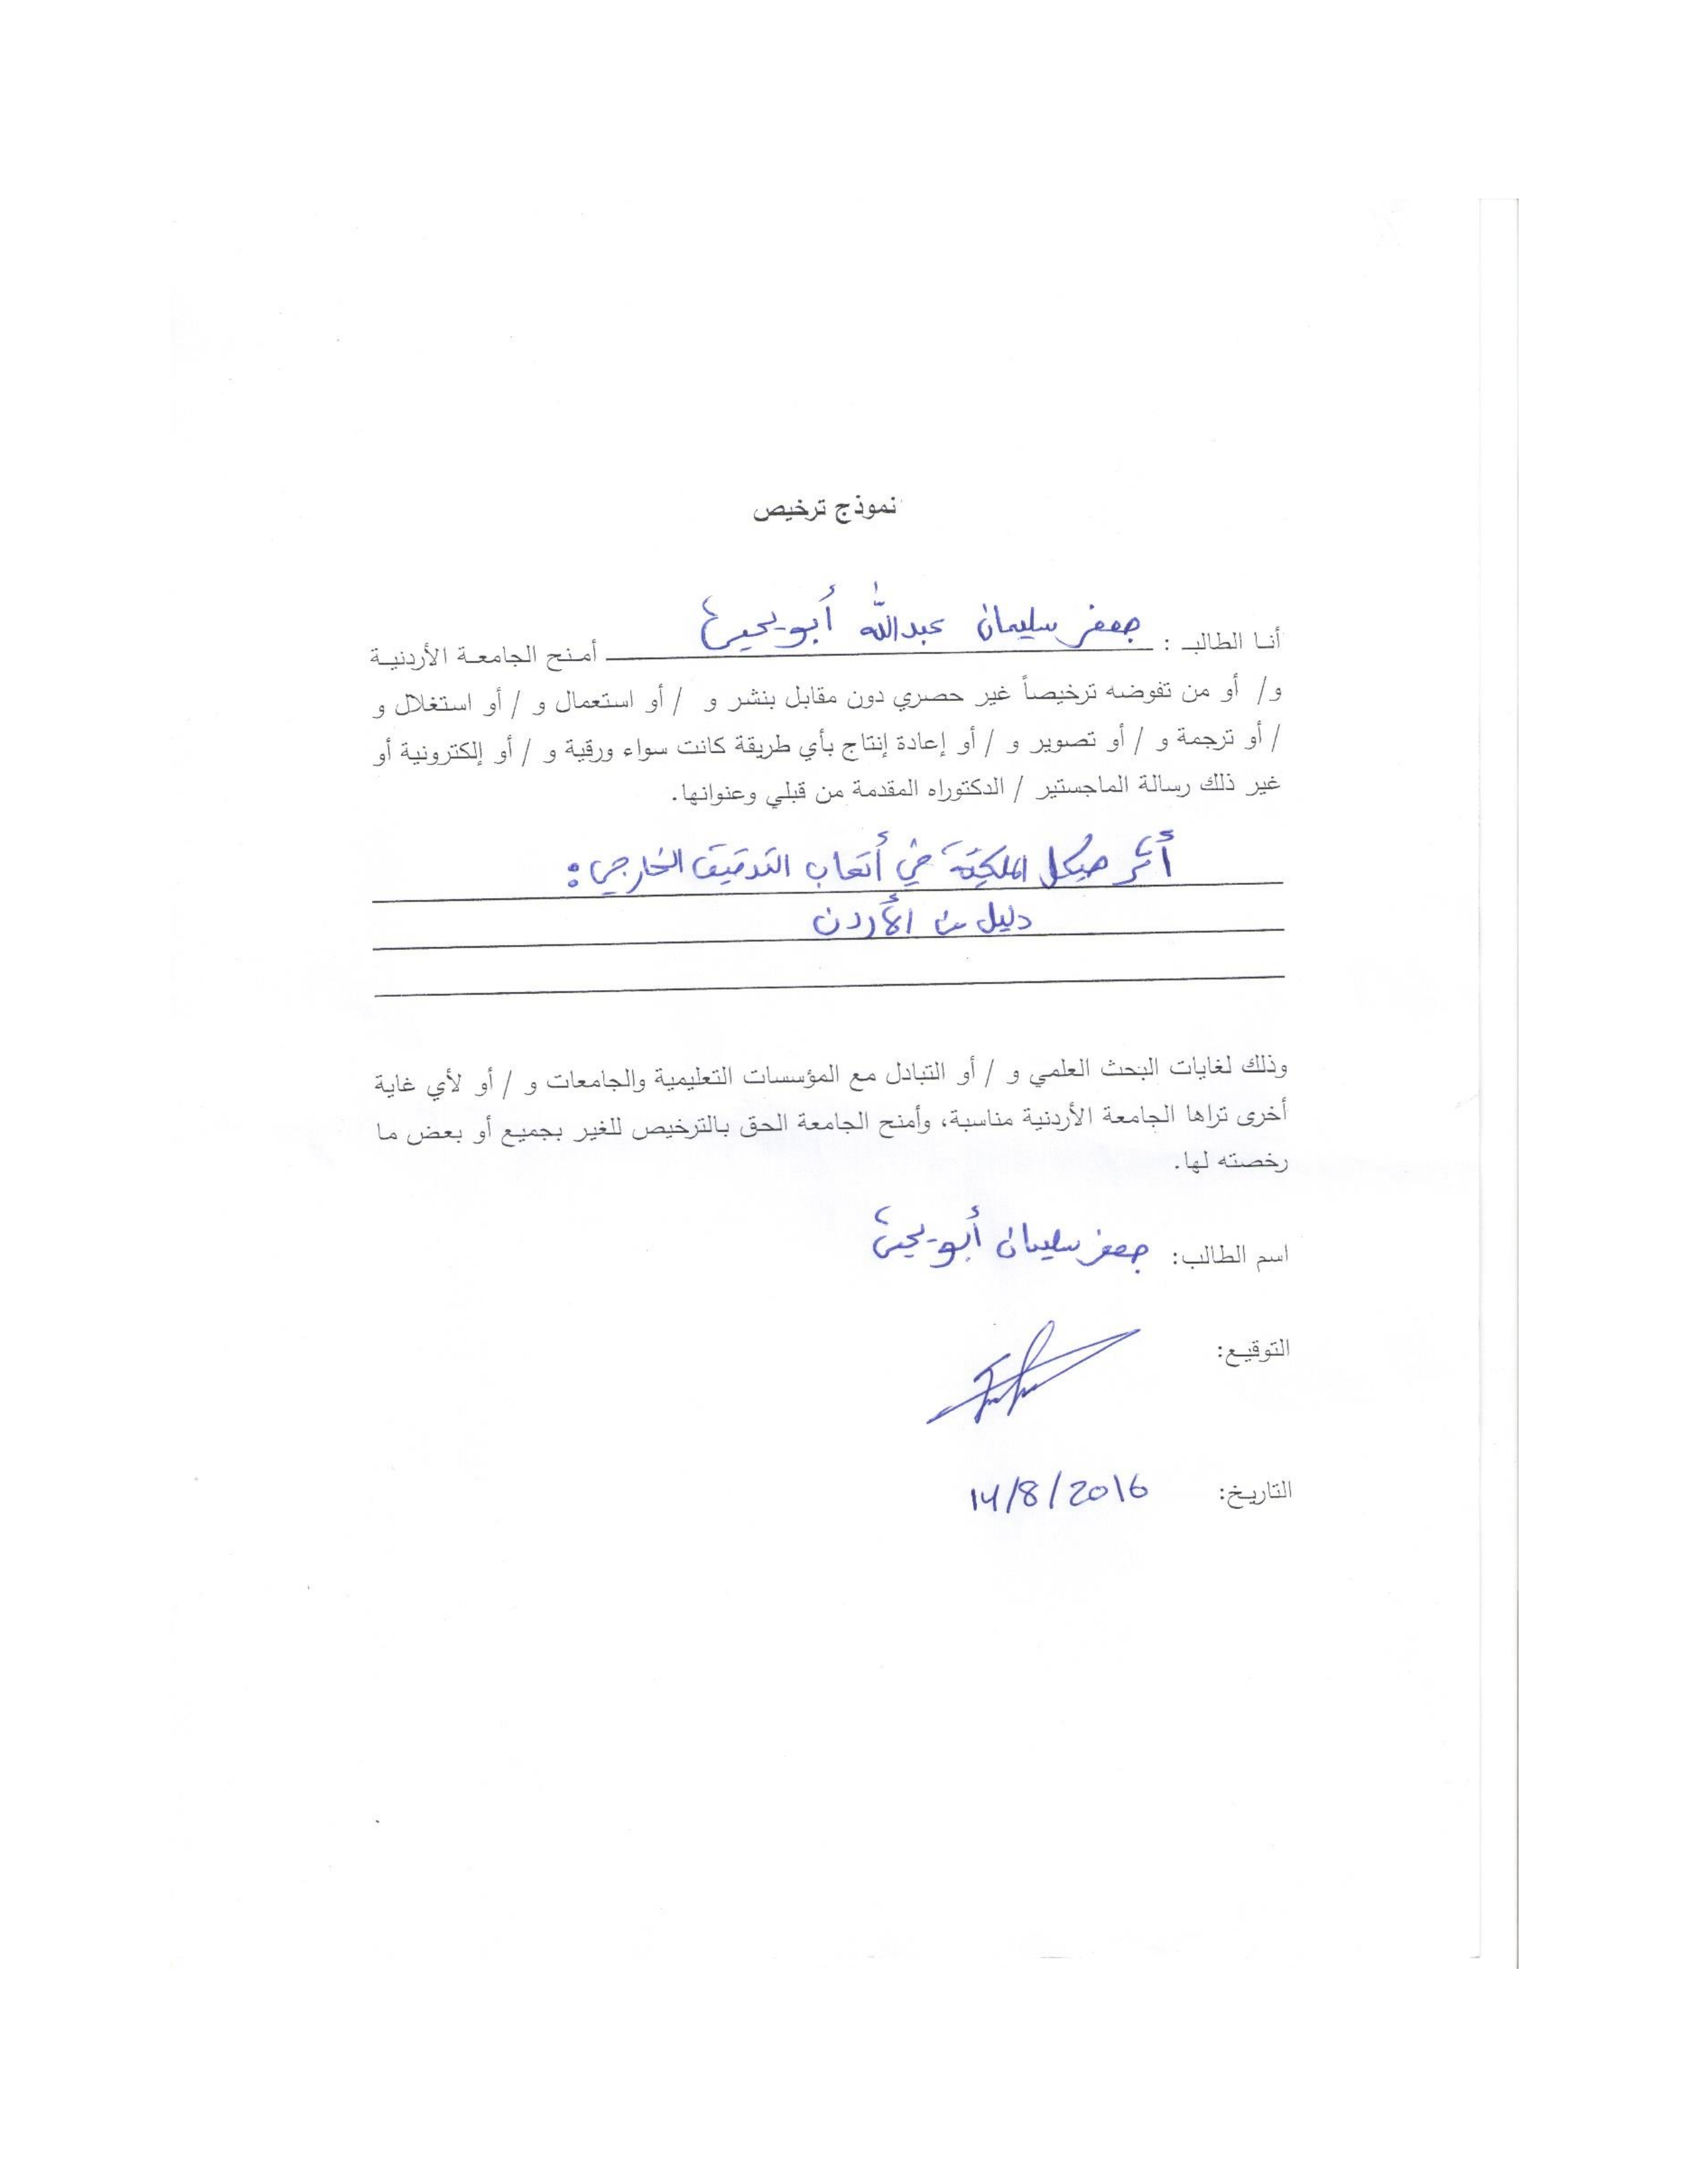 نموذج ترخيص
أنا الطالب : جعفر سليمان عبدالله أبو يحيى أمنح الجامعة الأردنية
و/ أو من تفوضه ترخيصاً غير حصري دون مقابل بنشر و / أو استعمال و / أو استغلال و
/ أو ترجمة و / أو تصوير و / أو إعادة إنتاج بأي طريقة كانت سواء ورقية و / أو إلكترونية أو
غير ذلك رسالة الماجستير / الدكتوراه المقدمة من قبلي وعنوانها.
أثر هيكل الملكية في أتعاب التدقيق الخارجي :
دليل من الأردن
وذلك لغايات البحث العلمي و / أو التبادل مع المؤسسات التعليمية والجامعات و / أو لأي غاية
أخرى تراها الجامعة الأردنية مناسبة، وأمنح الجامعة الحق بالترخيص للغير بجميع أو بعض ما
رخصته لها.
اسم الطالب: جعفر سليمان أبو يحيى
التوقيع:
التاريخ: 14/8/2016